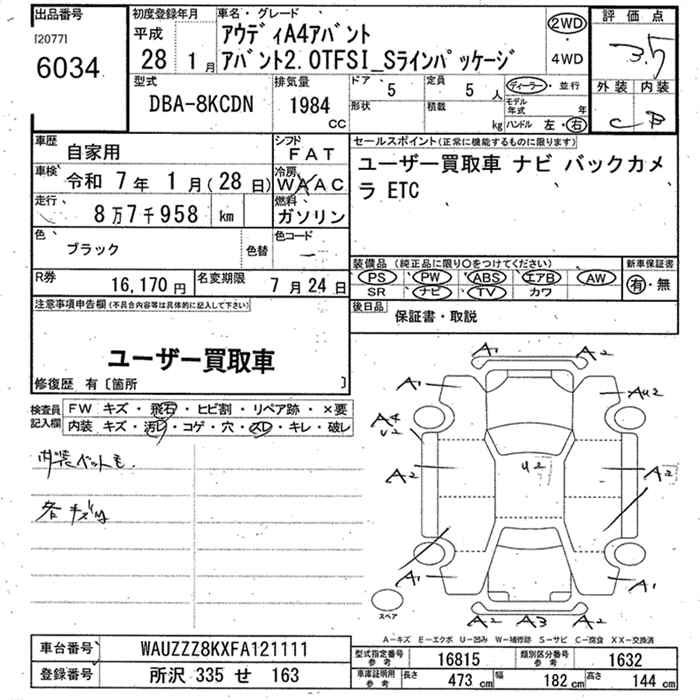 出品番号
[2077]
6034
初度登録年月
平成
28 1月
車名・グレード
アウディA4アバント
アバント2.0TFSI_Sラインパッケージ
2WD
4WD
評価点
3.5
外装 内装
C B
型式
DBA-8KCDN
排気量
1984
CC
ドア 5
定員 5 人
形状
積載 kg
ディーラー・並行
モデル年式 年
ハンドル 左・右
車歴
自家用
シフト
FAT
車検
令和 7年 1月(28日)
冷房
WAAC
走行
8万7千958 km
燃料
ガソリン
色
ブラック
色替
色コード
R券
16,170円
名変期限
7月24日
セールスポイント(正常に機能するものに限ります)
ユーザー買取車 ナビ バックカメ
ラ ETC
装備品 (純正品に限り○をつけてください)
PS PW ABS エアB AW
SR ナビ TV カワ
新車保証書
有・無
後日品
保証書・取説
注意事項申告欄(不具合内容等は具体的に記入して下さい)
ユーザー買取車
修復歴 有〔箇所 〕
検査員
記入欄
FW キズ・飛石・ヒビ割・リペア跡・×要
内装 キズ・汚レ・コゲ・穴・スレ・キレ・破レ
内装ペット毛.
各キズU
A1 A2
A1 AU2
A4
U2
A2 U2 A2
A2 A2
A1 A1
A2 A3 A2
スペア
A-キズ E-エクボ U-凹み W-補修跡 S-サビ C-腐食 XX-交換済
車台番号
WAUZZZ8KXFA121111
登録番号
所沢 335 せ 163
型式指定番号
参考
16815
類別区分番号
参考
1632
車庫証明用
参考
長さ 473 cm
幅 182 cm
高さ 144 cm